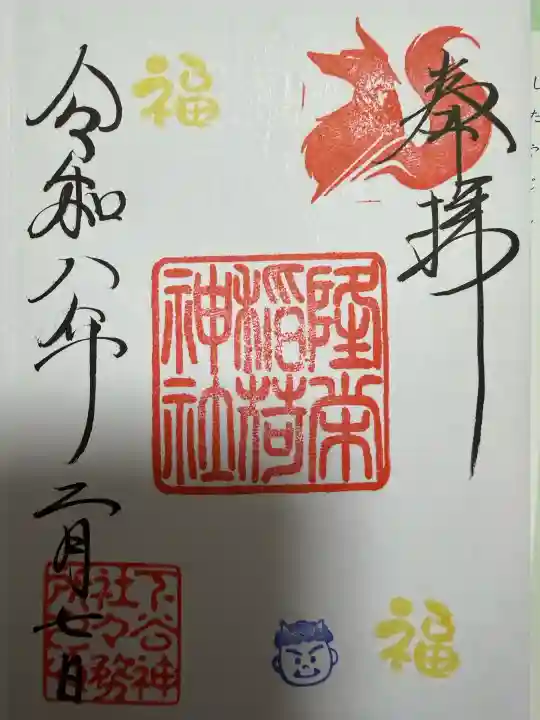 奉拝
福
隆栄
稲荷
神社
令和八年二月七日
下谷神
社々務
所之印
福